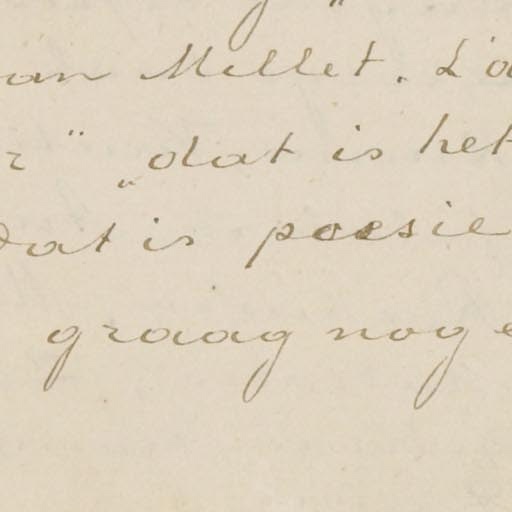 van Millet. L'a
r" „dat is het
dat is poesie
graag nog e